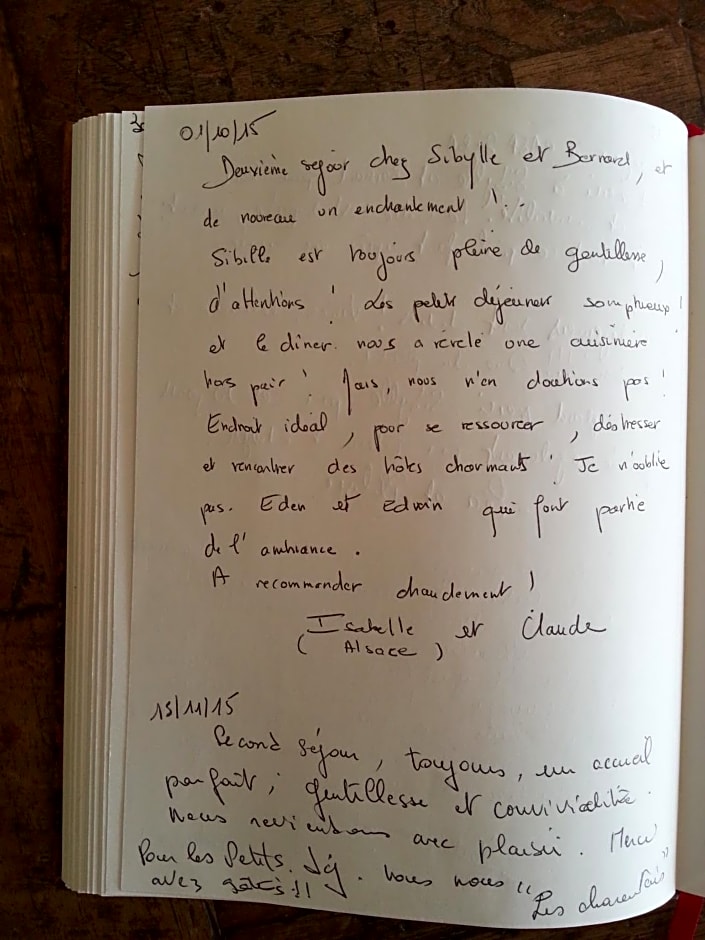 01/10/15
Deuxième séjour chez Sibylle et Bernard, et
de nouveau un enchantement !..
Sibille est toujours pleine de gentillesse,
d'attentions ! Les petits déjeuners somptueux !
et le dîner nous a révélé une cuisinière
hors pair ! Mais, nous n'en doutions pas !
Endroit idéal, pour se ressourcer, déstresser
et rencontrer des hôtes charmants ! Je n'oublie
pas Eden et Edwin qui font partie
de l'ambiance.
A recommander chaudement !
Isabelle et Claude
(Alsace)
13/11/15
Second séjour, toujours, un accueil
parfait ; gentillesse et convivialité.
Nous reviendrons avec plaisir. Merci
Pour les Petits Déj. Vous nous
avez gâtés !!
"Les charentais"